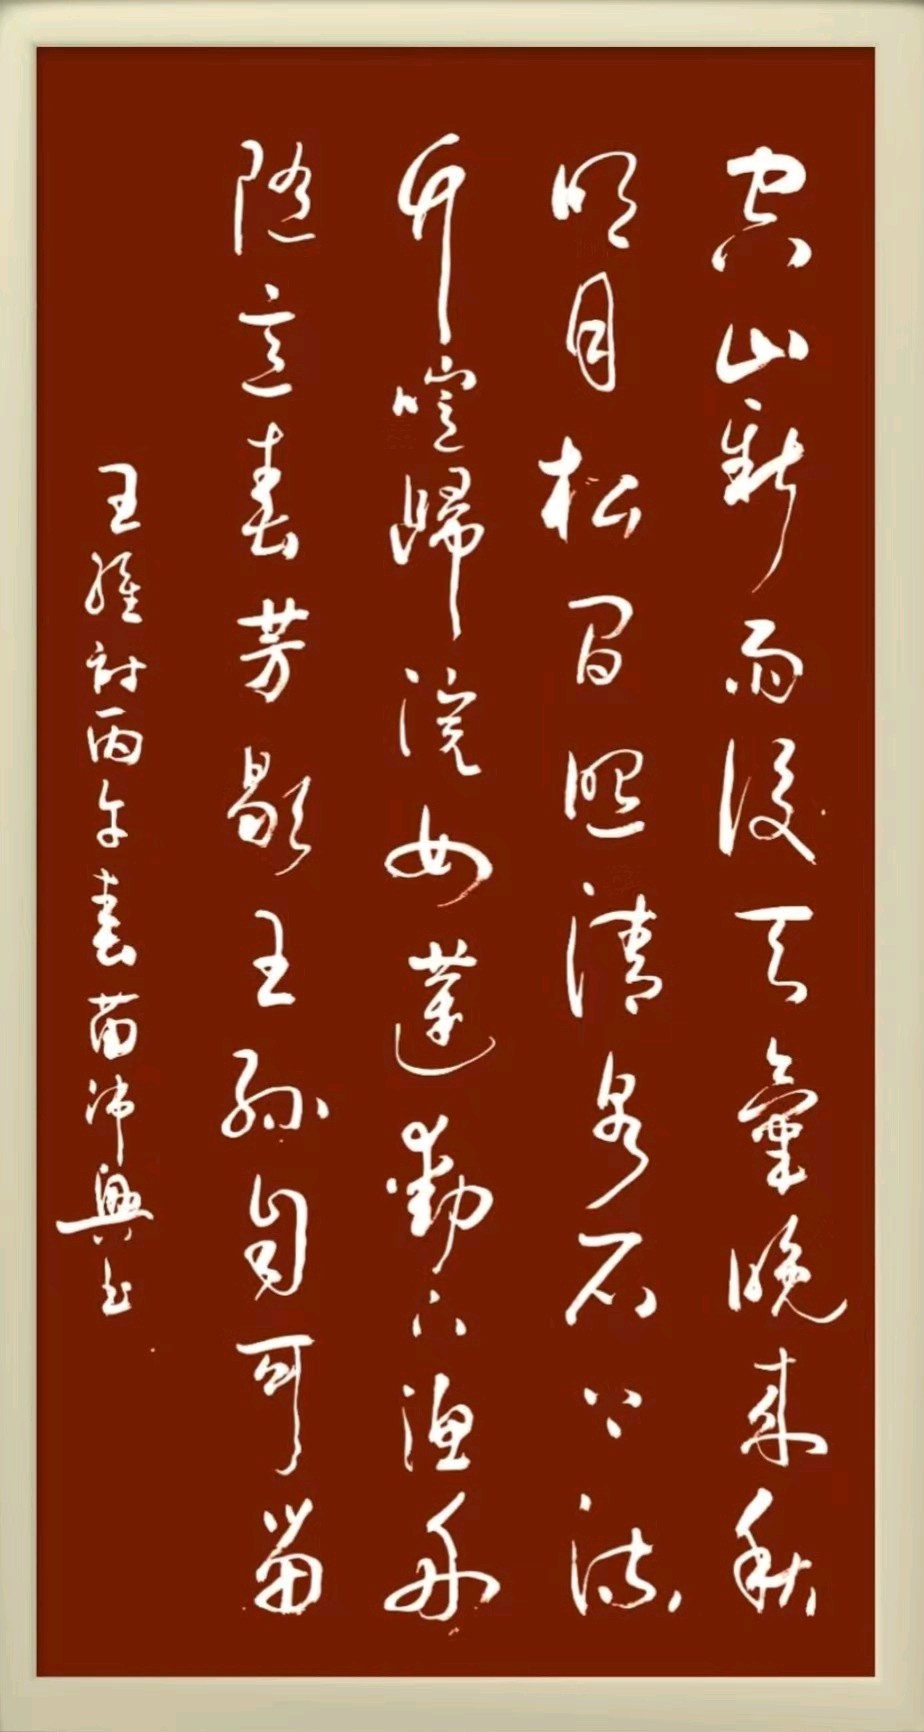 空山新雨後天氣晚来秋
明月松间照清泉石上流
竹喧歸浣女蓮動下漁舟
随意春芳歇王孫自可留
王維诗丙午春苗沛興书